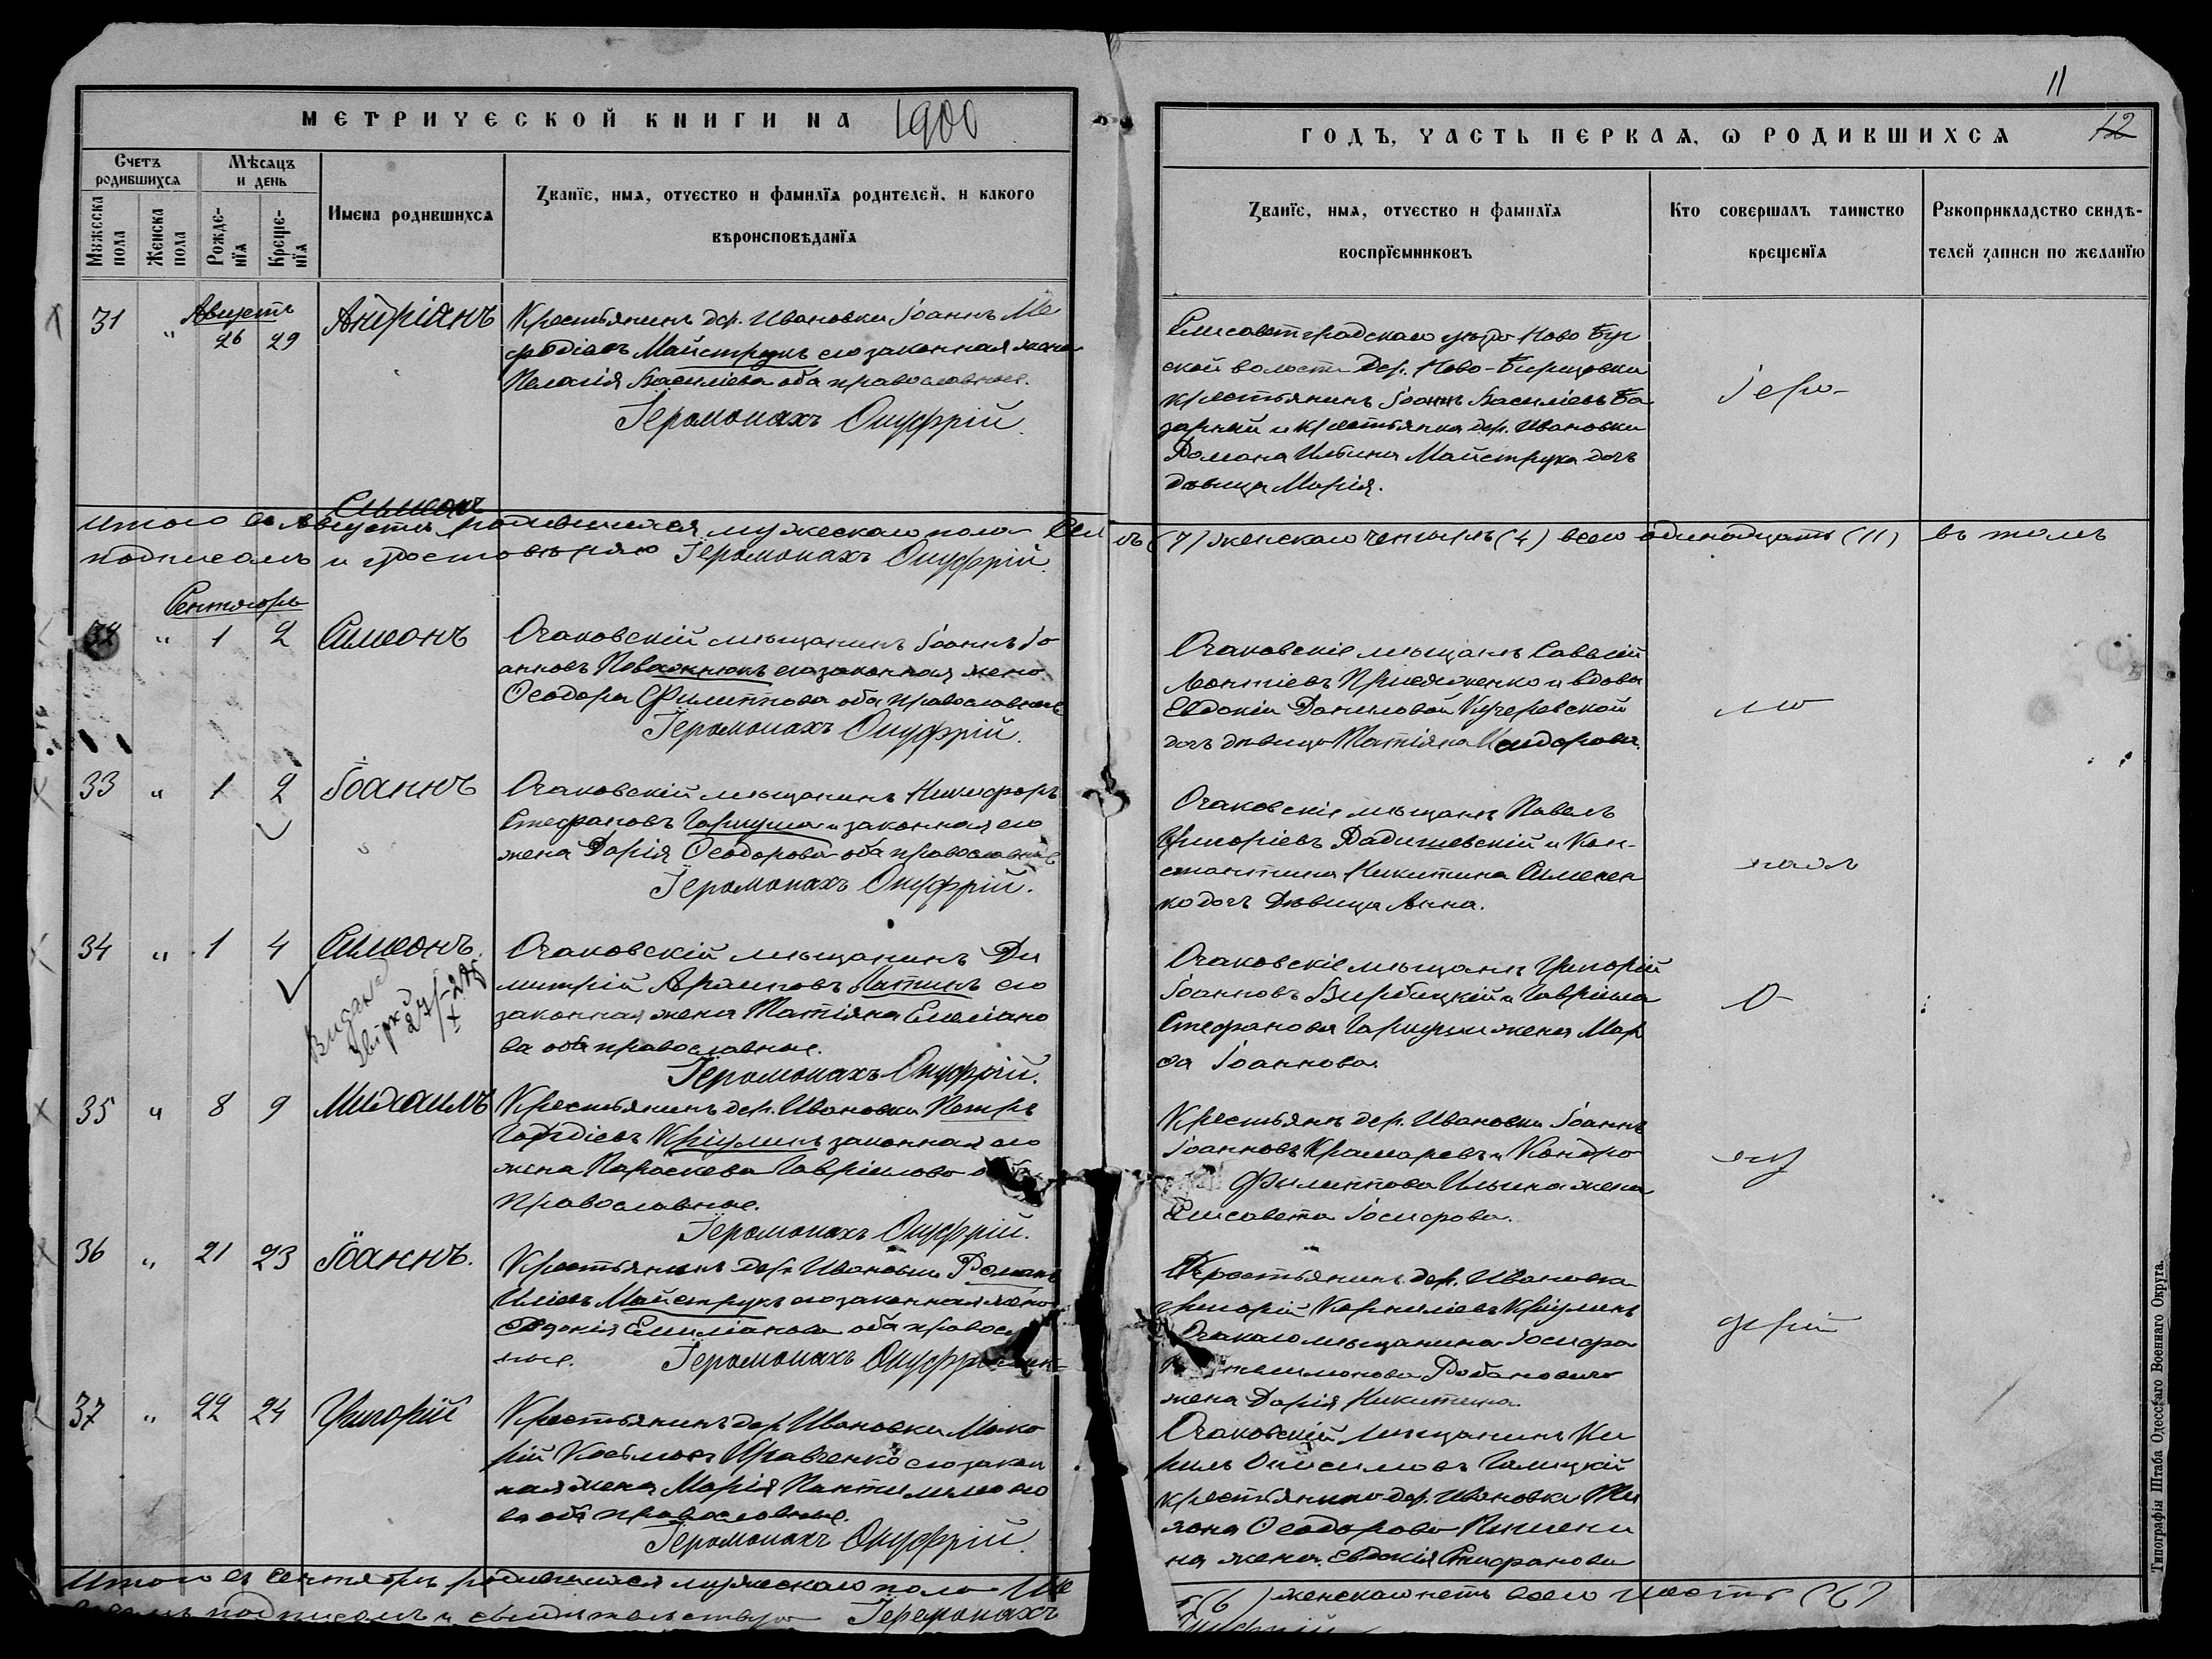 11
МЕТРИЧЕСКОЙ КНИГИ НА 1900
ГОДЪ, ЧАСТЬ ПЕРВАЯ, Ѡ РОДИВШИХСЯ 12
Счетъ родившихся
Мѣсяцъ и день
Мужеска пола
Женска пола
Рожденїя
Крещенїя
Имена родившихся
Званїе, имя, отчество и фамилїя родителей, и какого
вѣроисповѣданїя
Званїе, имя, отчество и фамилїя
воспрїемниковъ
Кто совершалъ таинство
крещенїя
Рукоприкладство свидѣ-
телей записи по желанїю
Августъ
31 " 26 29 Андріанъ
Крестьянинъ дер. Ивановки Іоаннъ Ме
фодіевъ Майструкъ его законная жена
Пелагія Василіева оба православные.
Іеромонахъ Онуфрій.
Елисаветградскаго уѣзда Ново Буг
ской волости Дер. Ново-
крестьянинъ Іоаннъ Василіевъ Ба
зарный и крестьянка дер. Ивановки
Романа Ильина Майструка дочь
дѣвица Марія.
Іеро-
Симеонъ
Итого въ Августѣ родившихся мужескаго пола Сем
ь (7) женскаго четыре (4) всего одинадцать (11) въ томъ
подписомъ и Іеромонахъ Онуфрій.
Сентябрь
32 " 1 2 Симеонъ
Очаковскій мѣщанинъ Іоаннъ Іо
анновъ его законная жена
Ѳеодора Филиппова оба православные
Іеромонахъ Онуфрій.
Очаковскіе мѣщане Савватій
Леонтіевъ и вдовы
Евдокіи Даниловой Кучеревской
дочь дѣвица Татіяна
мо
33 " 1 2 Іоаннъ
Очаковскій мѣщанинъ Никифоръ
Стефановъ Гарнуша и законная его
жена Дарія Ѳеодорова оба православные
Іеромонахъ Онуфрій.
Очаковскіе мѣщане Павелъ
Григоріевъ Радишевскій и Кон-
стантина Никитина Симонен
ко дочь Дѣвица Анна.
нахъ
34 " 1 4 Симеонъ.
Очаковскій мѣщанинъ Ди
митрій Латинъ его
законная жена Татіяна Емеліано
ва оба православные.
Іеромонахъ Онуфрій.
Очаковскіе мѣщане Григорій
Іоанновъ Вербицкій и Гавріила
Стефанова Гарнуши жена Мар
ѳа Іоаннова
О-
35 " 8 9 Михаилъ
Крестьянинъ дер. Ивановки Петръ
Гордіевъ Кріулинъ законная его
жена Параскева Гавріилова
православные.
Іеромонахъ Онуфрій.
Крестьяне дер. Ивановки Іоаннъ
Іоанновъ Крамаревъ и Кондра
Филиппова Ильина жена
Елисавета Іосифова.
ну
36 " 21 23 Іоаннъ.
Крестьянинъ дер. Ивановки Романъ
Иліевъ Майструкъ его законная жена
Евдокія Емиліанова оба правос
ные. Іеромонахъ Онуфрій
Крестьянинъ дер. Ивановки
Григорій Корниліевъ Кріулинъ
мѣщанина Іосифа
жена Дарія Никитина.
фрій
37 " 22 24 Григорій
Крестьянинъ дер. Ивановки Мака
рій Косьминъ Кравченко его закон
ная жена Марія Пантелимоно
ва оба православные.
Іеромонахъ Онуфрій.
Очаковскій мѣщанинъ Ки
рилъ Онисимовъ Галицкій
крестьянина дер. Ивановки
Ѳеодорова
на жена Евдокія Стефанова
Итого въ Сентябрѣ родившихся мужескаго пола Ше
(6) женскаго нетъ всего шесть (6)
подписомъ и свидѣтельствую Іеромонахъ
Онуфрій
Типографія Штаба Одесскаго Военнаго Округа.